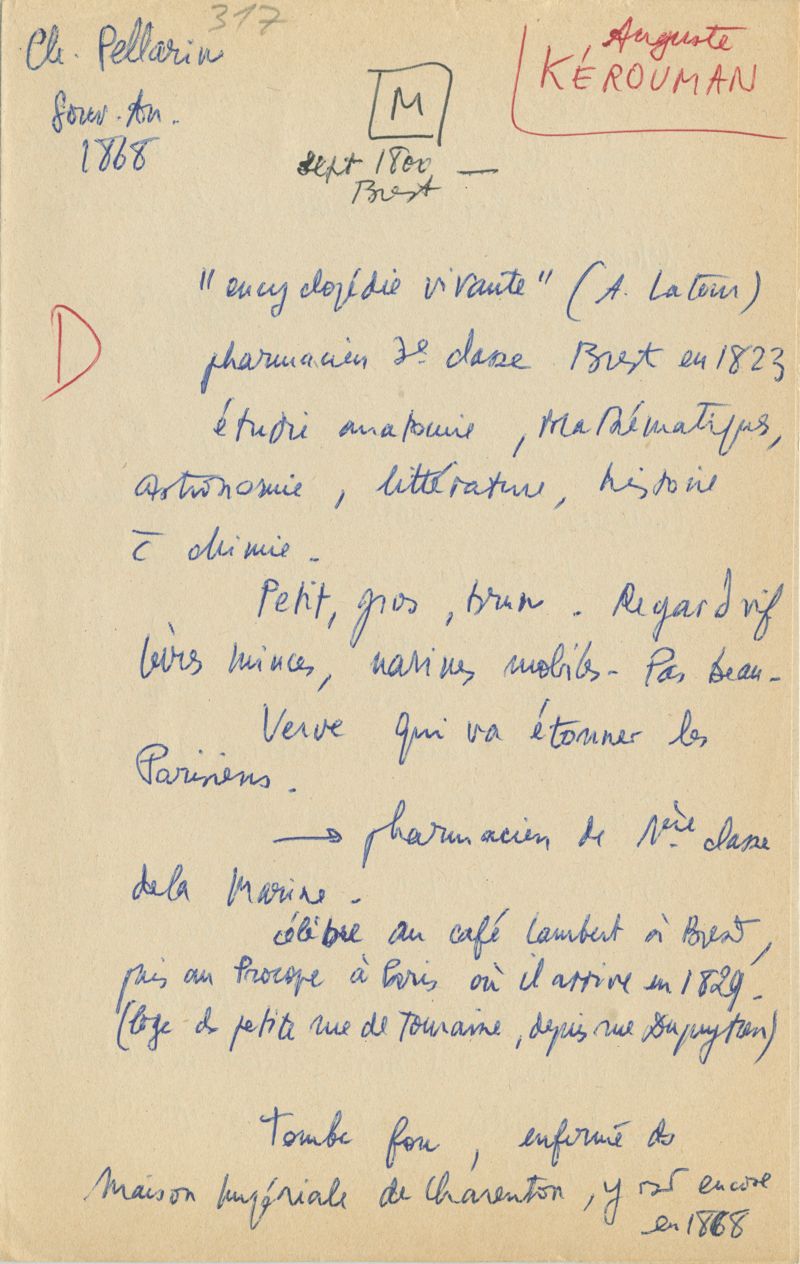 317
Ch. Pellarin
Souv. An.
1868
Auguste
KÉROUMAN
M
sept 1800 —
Brest
D
"encyclopédie vivante" (A. Latour)
pharmacien 3e classe Brest en 1823
étudie anatomie, Mathématiques,
astronomie, littérature, histoire
c̄ chimie.
Petit, gros, brun. Regard vif
lèvres minces, narines mobiles - Pas beau -
Verve qui va étonner les
Parisiens.
→ pharmacien de 1ère classe
de la Marine.
célèbre au café Lambert à Brest,
puis au Procope à Paris où il arrive en 1829.
(loge ds petite rue de Touraine, depuis rue Dupuytren)
Tombe fou, enfermé ds
Maison Impériale de Charenton, y est encore
en 1868